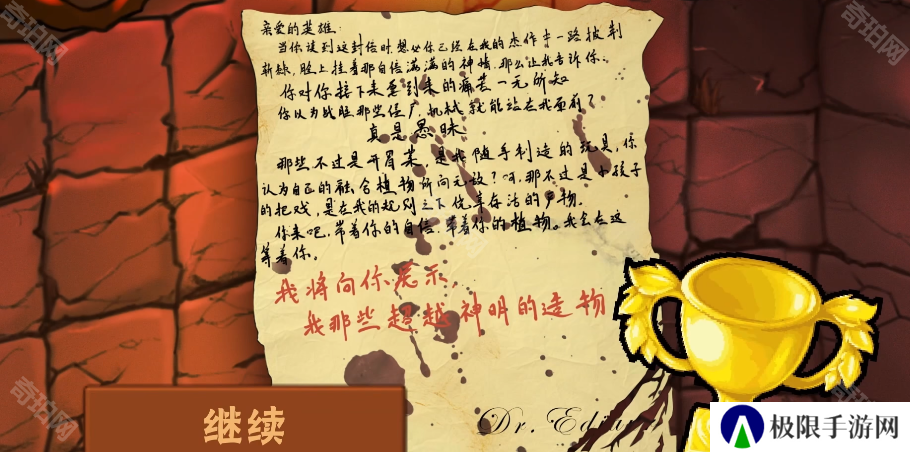 亲爱的英雄:
当你读到这封信时想必你已经在我的杰作中一路披荆
斩棘，脸上挂着那自信满满的神情，那么让我告诉你:
你对你接下来要到来的痛苦一无所知
你以为战胜那些僵尸，机械就能站在我面前？
真是愚昧
那些不过是开胃菜，是我随手制造的玩具，你
认为自己的融合植物所向无敌？呵，那不过是小孩子
的把戏，是在我的规则之下优幸存活的产物。
你来吧，带着你的自信，带着你的植物。我会在这
等着你。
我将向你展示，
我那些超越神明的造物
Dr. Ed
继续
极限手游网
奇珀网
奇珀网
奇珀网
奇珀网